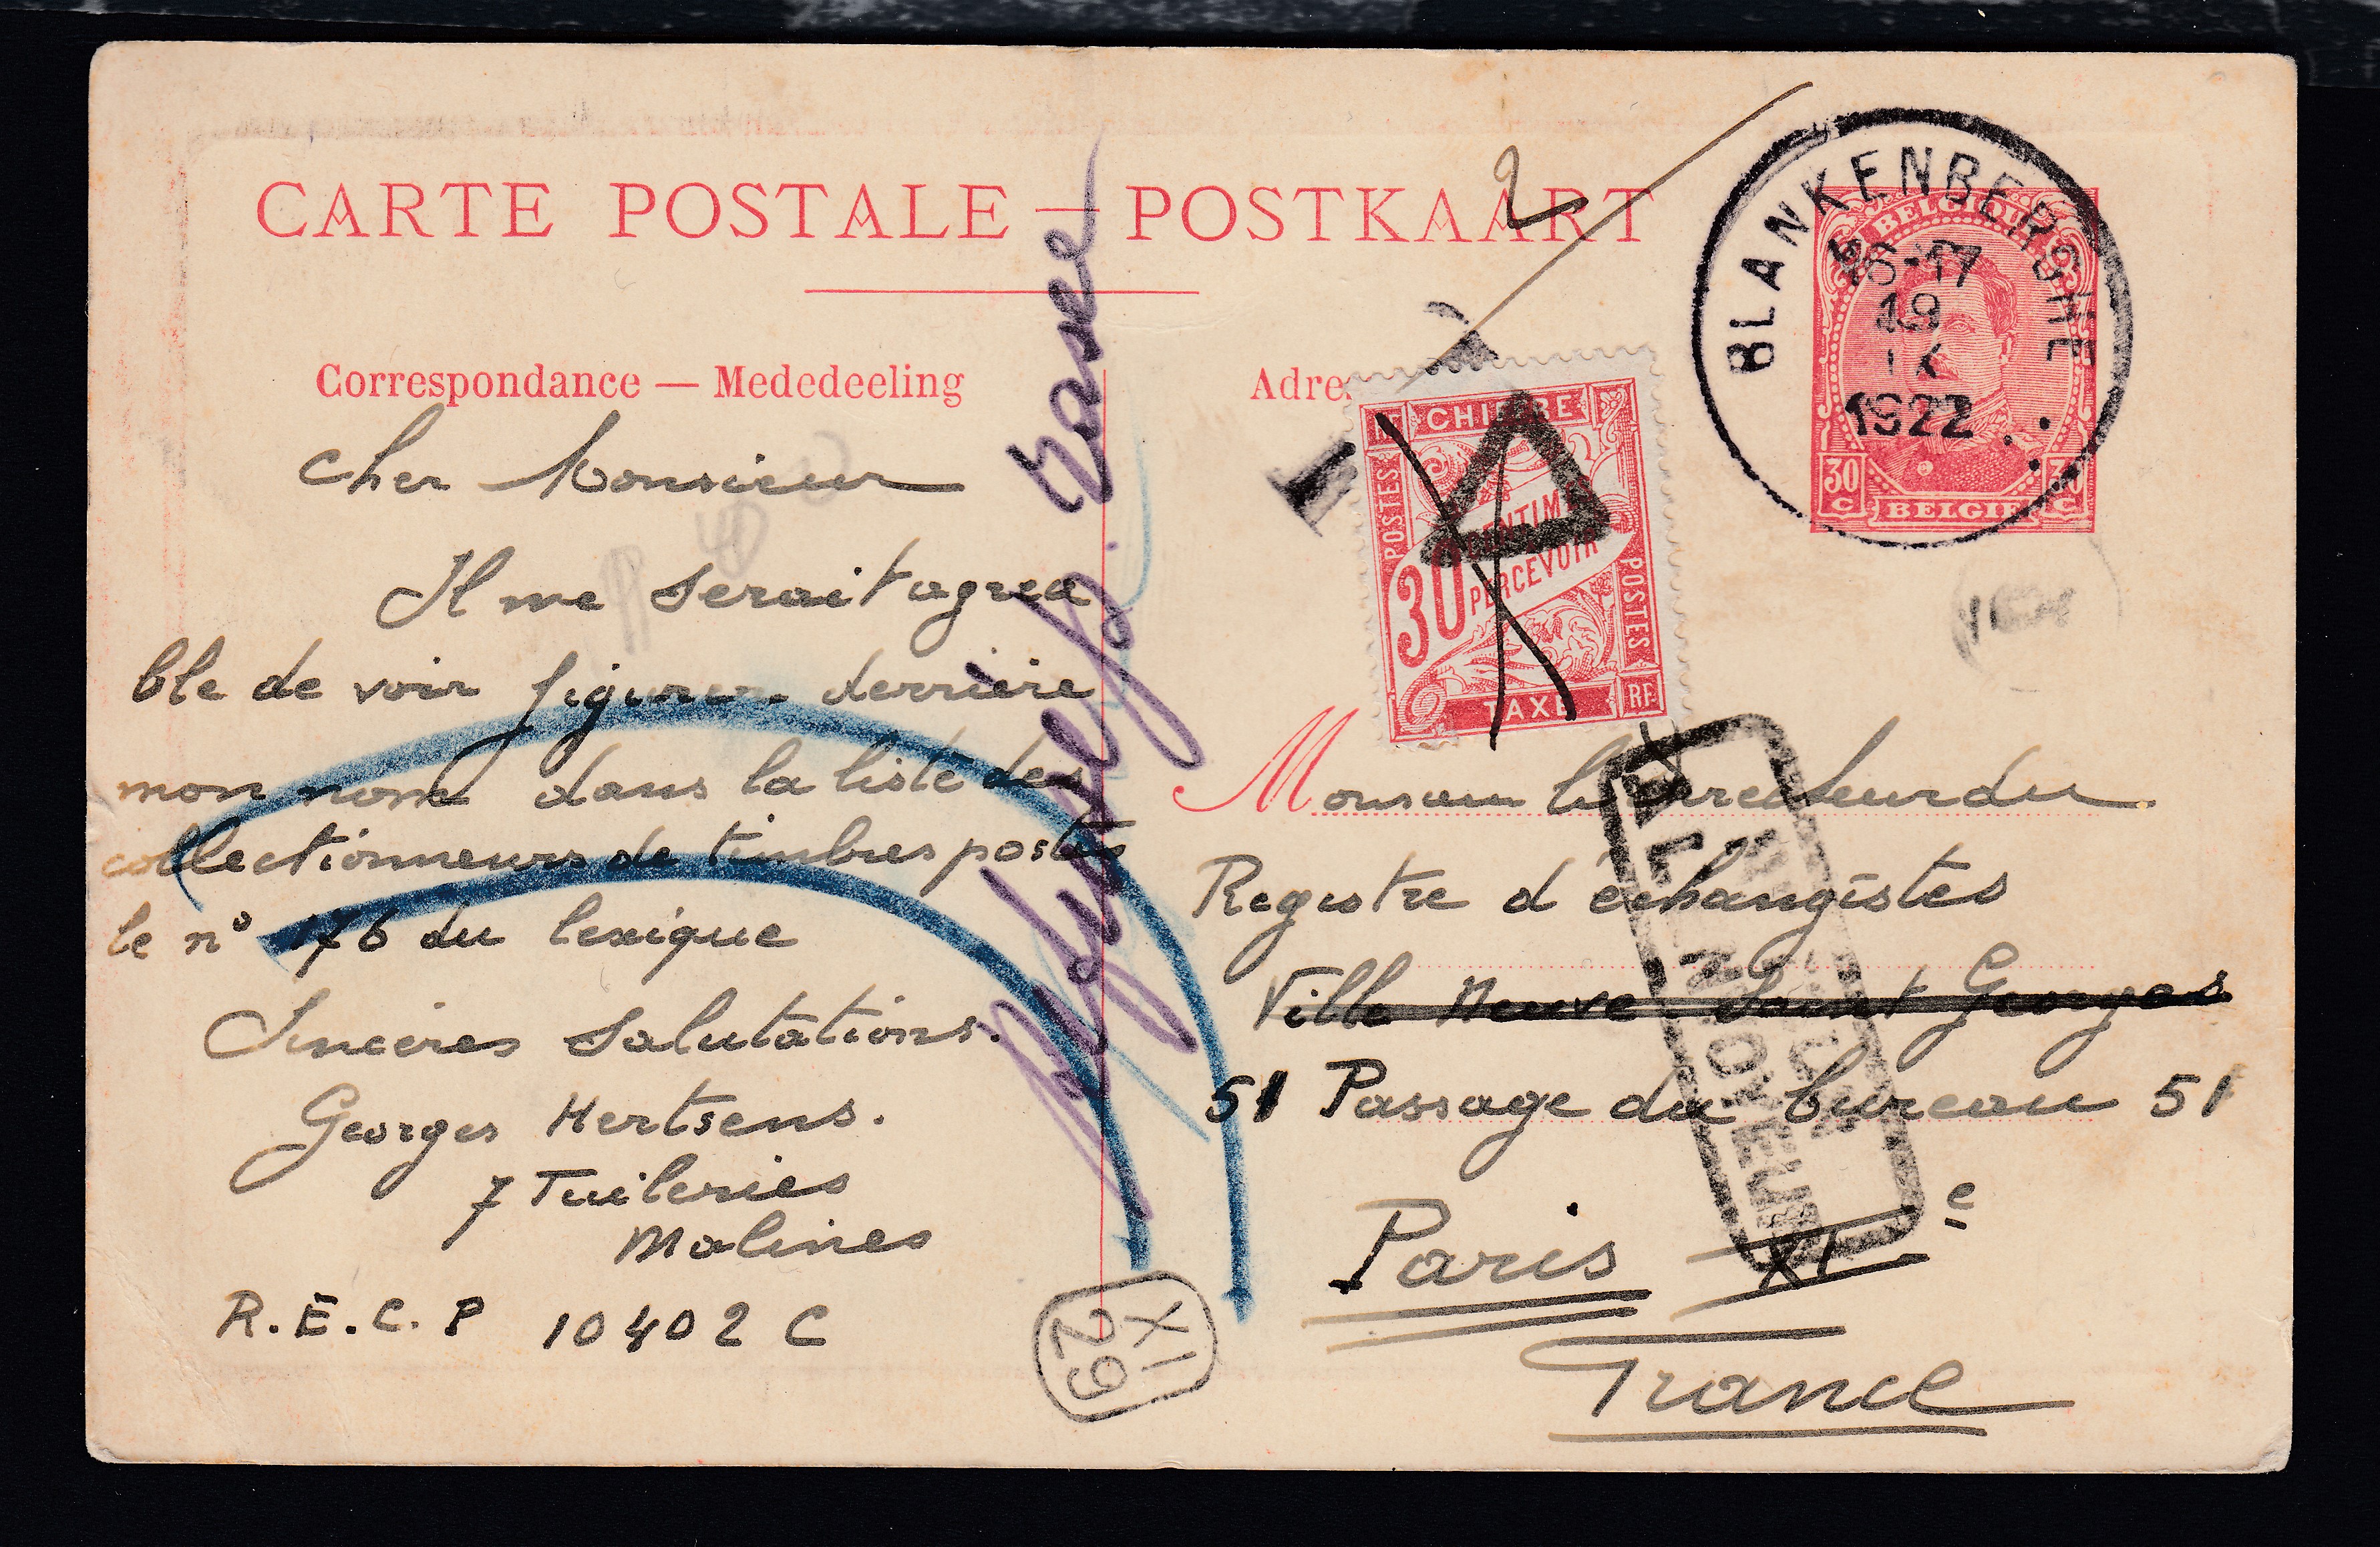 CARTE POSTALE — POSTKAART
2
Correspondance — Mededeeling
Adre
BLANKENBERGHE
16-17
19
IX
1922
BELGIQUE
30 C
BELGIE
30 C
T
CHIFFRE
POSTES
30
CENTIM
PERCEVOIR
POSTES
TAXE
RF
Cher Monsieur
Il me serait agrea
ble de voir figurer derrière
mon nom dans la liste des
collectionneurs de timbres postes
le n° 176 du lexique
Sincères Salutations.
Georges Hertsens.
7 Tuileries
Malines
R.E.C.P 10402 C
Refusé
Monsieur le Directeur du
Registre d'échangistes
Ville Neuve Saint Georges
51 Passage du bureau 51
Paris XI e
France
RETOUR
A L'ENVOYEUR
XI
29